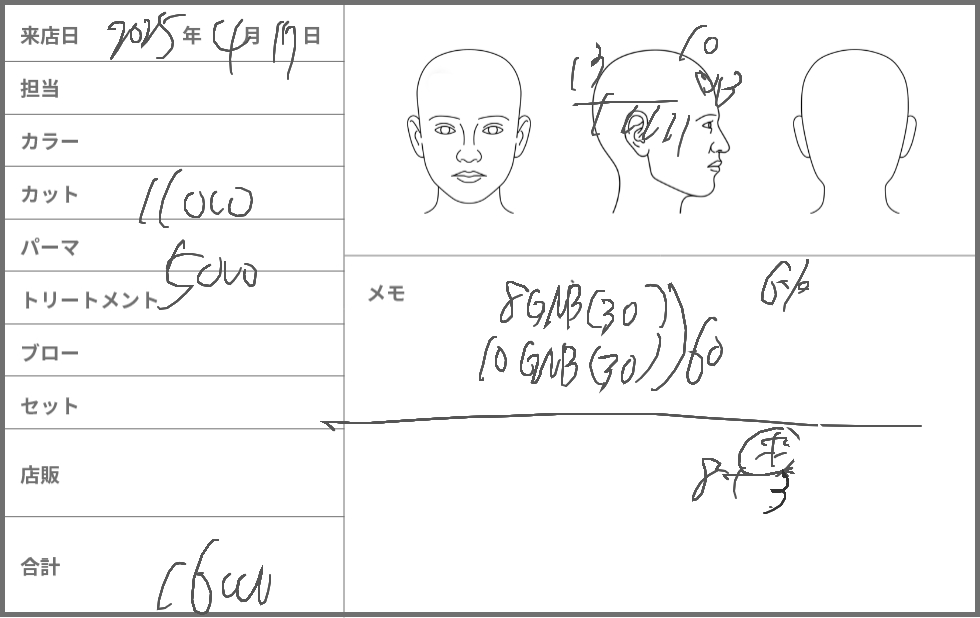 来店日 2025年4月17日
担当
カラー
カット 11000
パーマ 5000
トリートメント
ブロー
セット
店販
合計 16000
10
13
メモ
8GNB(30)
10GNB(30) 60
6%
8
3